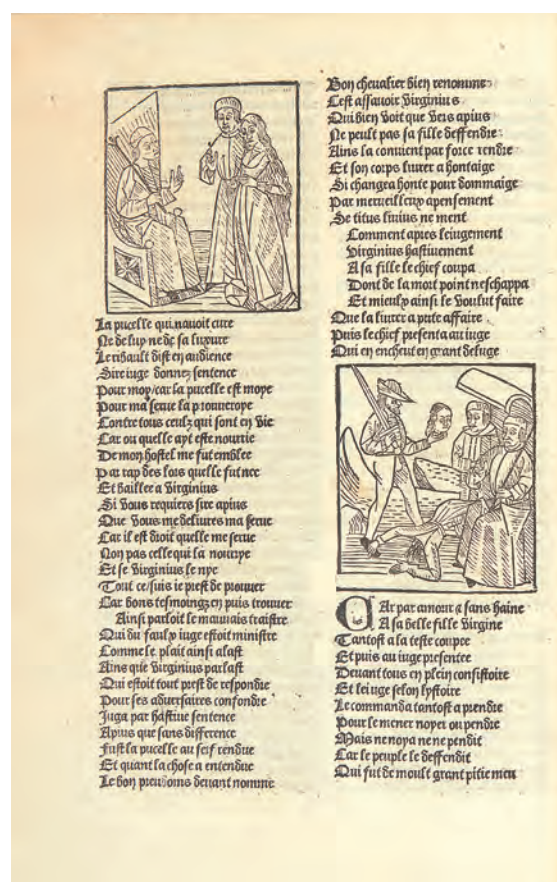 La pucelle qui navoit cure
Ne de luy ne de sa luxure
Le ribault dist en audience
Sire iuge donnez sentence
Pour moy/car la pucelle est moye
Pour ma serue la prouueroye
Contre tous ceulx qui sont en vie
Car ou quelle ayt este nourrie
De mon hostel me fut emblee
Par rap des lors quelle fut nee
Et baillee a virginius
Si vous requiers sire apius
Que vous me deliures ma serue
Car il est droit quelle me serue
Non pas celle qui la nourrye
Et se virginius le nye
Tout ce/suis ie prest de prouuer
Car bons tesmoingz en puis trouuer
Ainsi parloit le mauuais traistre
Qui du faulx iuge estoit ministre
Comme le plait ainsi alast
Ains que virginius parlast
Qui estoit tout prest de respondre
Pour ses aduersaires confondre
Juga par hastiue sentence
Apius que sans difference
Fust la pucelle au serf rendue
Et quant la chose a entendue
Le bon preudoms deuant nomme
Bon cheualier bien renomme
Cest assauoir virginius
Qui bien voit que vers apius
Ne peult pas sa fille deffendre
Ains la conuient par force rendre
Et son corps liurer a hontaige
Si changea honte pour dommaige
Par merueilleux apensement
Se titus liuius ne ment
Comment apres le iugement
virginius hastiuement
A sa fille le chief coupa
Dont de la mort point neschappa
Et mieulx ainsi le voulut faire
Que la liurer a pute affaire
Puis le chief presenta au iuge
Qui en encheut en grant deluge
CAr par amour & sans haine
A sa belle fille virgine
Tantost a la teste coupee
Et puis au iuge presentee
Deuant tous en plein consistoire
Et le iuge selon lystoire
Le commanda tantost a prendre
Pour le mener noyer ou pendre
Mais ne noya ne ne pendit
Car le peuple le deffendit
Qui fut de moult grant pitie meu